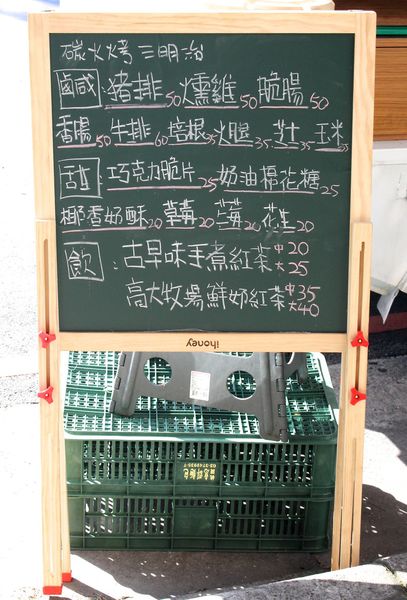 碳火烤三明治
鹵咸:豬排50燻雞50脆腸50
香腸50牛排60培根35火腿35芝士35玉米35
甜:巧克力脆片25奶油棉花糖25
椰香奶酥20草莓20藍莓20花生20
飲:古早味手煮紅茶中20大25
高大牧場鮮奶紅茶中35大40
ihoney